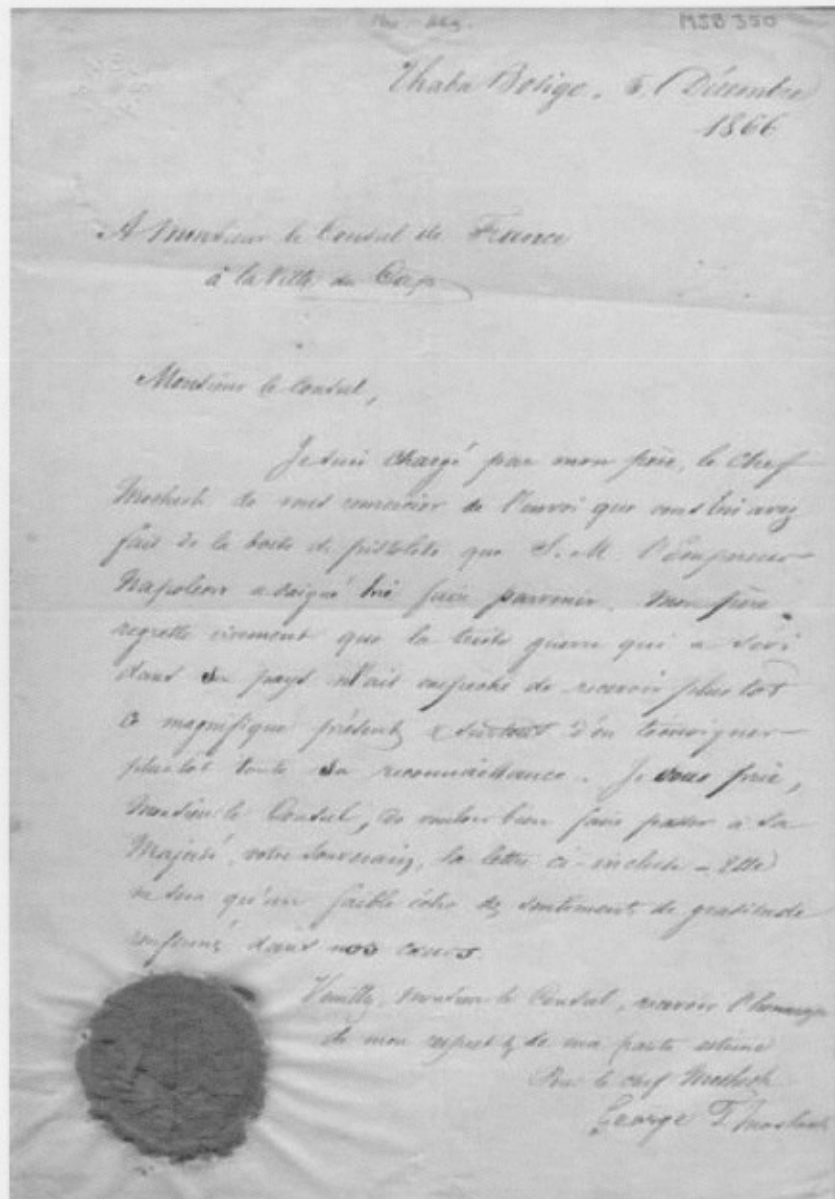 MSB 350
Thaba Bosigo. 5 Décembre
1866
A Monsieur le Consul de France
à la Ville du Cap
Monsieur le Consul,
Je suis chargé par mon père, le Chef
Moshesh de vous remercier de l'envoi que vous lui avez
fait de la boite de pistolets que S. M. l'Empereur
Napoléon a daigné lui faire parvenir. Mon père
regrette vivement que la triste guerre qui a sévi
dans son pays l'ait empêché de recevoir plus tôt
ce magnifique présent, & surtout d'en témoigner
plus tôt toute sa reconnaissance. Je vous prie,
Monsieur le Consul, de vouloir bien faire passer à Sa
Majesté, votre Souverain, la lettre ci-incluse - Elle
ne sera qu'un faible écho des sentiments de gratitude
renfermés dans nos cœurs.
Veuillez, Monsieur le Consul, recevoir l'hommage
de mon respect & de ma haute estime
Pour le chef Moshesh
George T. Moshesh